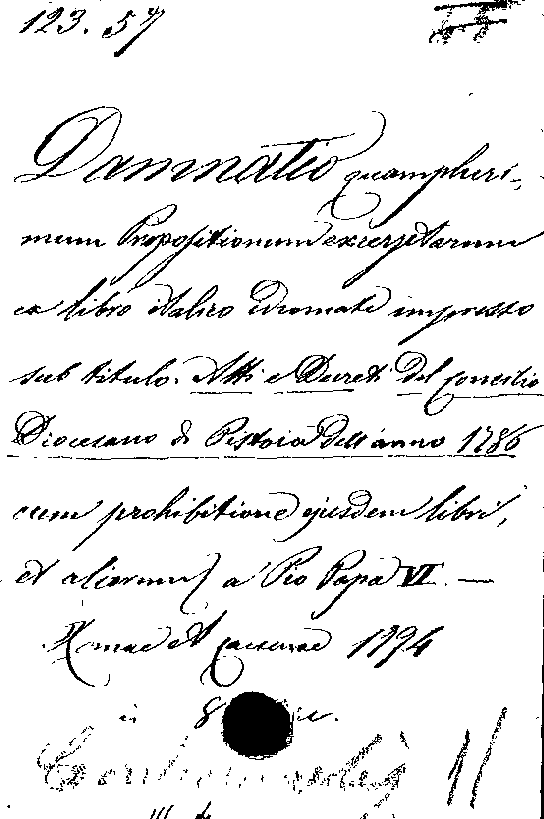 123. 57
Damnatio quampluri-
mum Propositionum excerptarum
ex libro italico idiomate impresso
sub titulo. Atti e Decreti del Concilio
Diocesano di Pistoia dell'anno 1786
cum prohibitione ejusdem libri,
et aliorum a Pio Papa VI. —
Romae et 1794
in 8